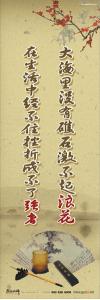 大海里没有礁石激不起浪花
在生活中经不住挫折成不了强者